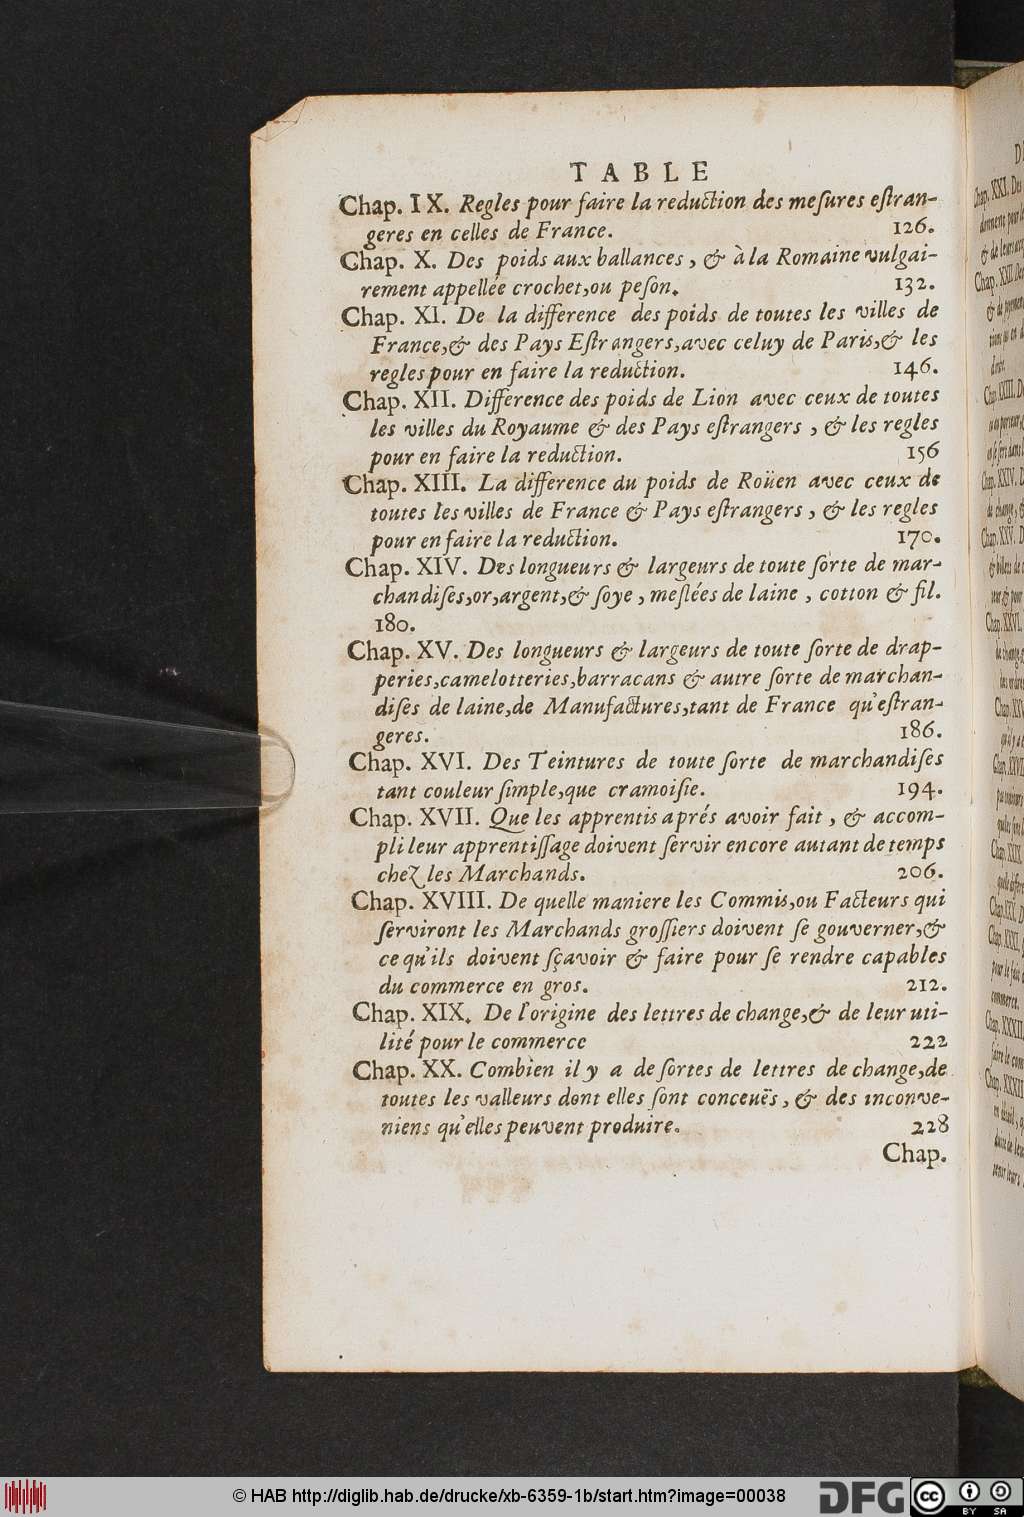 TABLE
Chap. IX. Regles pour faire la reduction des meſures eſtran-
geres en celles de France. 126.
Chap. X. Des poids aux ballances, & à la Romaine vulgai-
rement appellée crochet, ou peſon. 132.
Chap. XI. De la difference des poids de toutes les villes de
France, & des Pays Eſtrangers, avec celuy de Paris, & les
regles pour en faire la reduction. 146.
Chap. XII. Difference des poids de Lion avec ceux de toutes
les villes du Royaume & des Pays eſtrangers, & les regles
pour en faire la reduction. 156
Chap. XIII. La difference du poids de Roüen avec ceux de
toutes les villes de France & Pays eſtrangers, & les regles
pour en faire la reduction. 170.
Chap. XIV. Des longueurs & largeurs de toute ſorte de mar-
chandiſes, or, argent, & ſoye, meſlées de laine, cotton & fil.
180.
Chap. XV. Des longueurs & largeurs de toute ſorte de drap-
peries, camelotteries, barracans & autre ſorte de marchan-
diſes de laine, de Manufactures, tant de France qu'eſtran-
geres. 186.
Chap. XVI. Des Teintures de toute ſorte de marchandiſes
tant couleur ſimple, que cramoiſie. 194.
Chap. XVII. Que les apprentis aprés avoir fait, & accom-
pli leur apprentiſſage doivent ſervir encore autant de temps
chez les Marchands. 206.
Chap. XVIII. De quelle maniere les Commis, ou Facteurs qui
ſerviront les Marchands groſſiers doivent ſe gouverner, &
ce qu'ils doivent ſçavoir & faire pour ſe rendre capables
du commerce en gros. 212.
Chap. XIX. De l'origine des lettres de change, & de leur uti-
lité pour le commerce 222
Chap. XX. Combien il y a de ſortes de lettres de change, de
toutes les valleurs dont elles ſont conceuës, & des inconve-
niens qu'elles peuvent produire. 228
Chap.
© HAB http://diglib.hab.de/drucke/xb-6359-1b/start.htm?image=00038
DFG
cc
BY SA